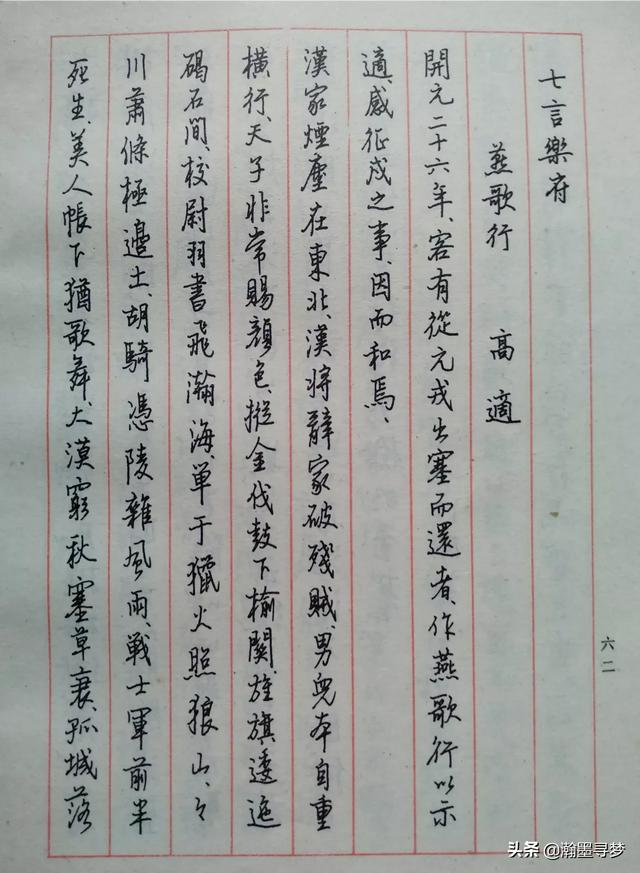 七言樂府
燕歌行 高適
開元二十六年、客有從元戎出塞而還者、作燕歌行以示
適、感征戍之事、因而和焉、
漢家煙塵在東北、漢將辭家破殘賊、男兒本自重
橫行、天子非常賜顏色、摐金伐鼓下榆關、旌旗逶迤
碣石間、校尉羽書飛瀚海、单于獵火照狼山、々
川蕭條極邊土、胡騎憑陵雜風雨、戰士軍前半
死生、美人帳下猶歌舞、大漠窮秋塞草衰、孤城落
六二
头条 @瀚墨寻梦